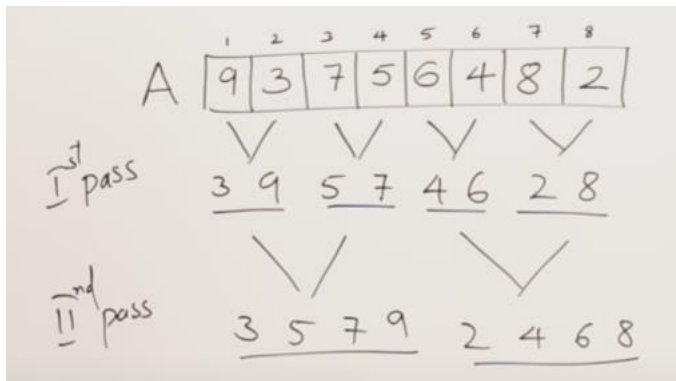 1 2 3 4 5 6 7 8
A 9 3 7 5 6 4 8 2
Ist pass 3 9 5 7 4 6 2 8
IInd pass 3 5 7 9 2 4 6 8